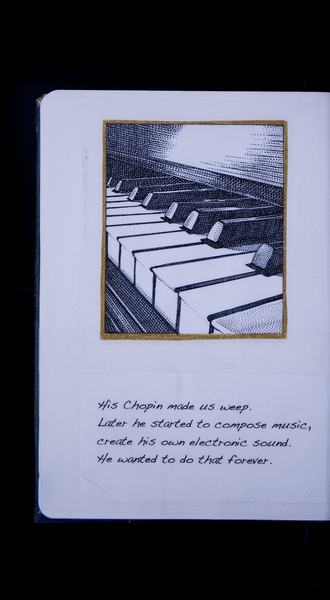 His Chopin made us weep.
Later he started to compose music,
create his own electronic sound.
He wanted to do that forever.